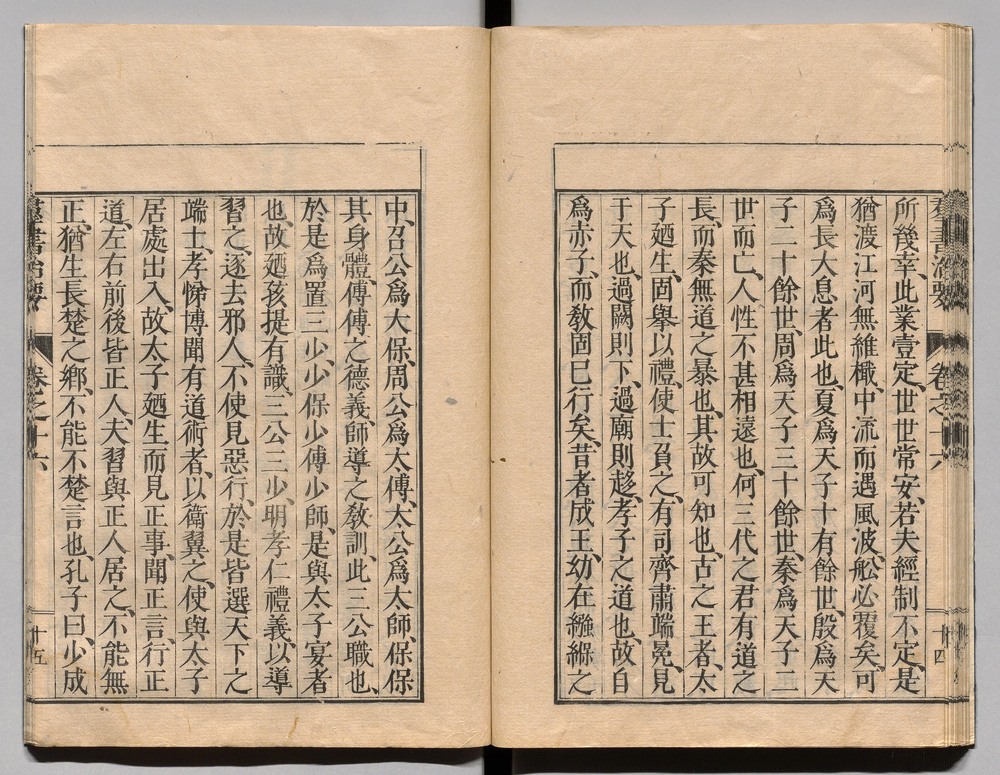 羣書治要 卷之十六 十四
所幾幸、此業壹定、世世常安、若夫經制不定、是
猶渡江河無維檝、中流而遇風波、舩必覆矣、可
爲長大息者此也、夏爲天子十有餘世、殷爲天
子二十餘世、周爲天子三十餘世、秦爲天子二
世而亡、人性不甚相遠也、何三代之君有道之
長、而秦無道之暴也、其故可知也、古之王者、太
子廼生、固舉以禮、使士負之、有司齊肅端冕、見
于天也、過闕則下、過廟則趍、孝子之道也、故自
爲赤子、而教固已行矣、昔者成王、幼在繦緥之
中、召公爲大保、周公爲大傅、太公爲太師、保保
其身體、傅傅之德義、師導之教訓、此三公職也、
於是爲置三少、少保少傅少師、是與太子宴者
也、故廼孩提有識、三公三少、明孝仁禮義、以導
習之、逐去邪人、不使見惡行、於是皆選天下之
端士、孝悌博聞有道術者、以衛翼之、使與太子
居處出入、故太子廼生而見正事、聞正言、行正
道、左右前後皆正人、夫習與正人居之、不能無
正、猶生長楚之鄕、不能不楚言也、孔子曰、少成
羣書治要 卷之十六 十五